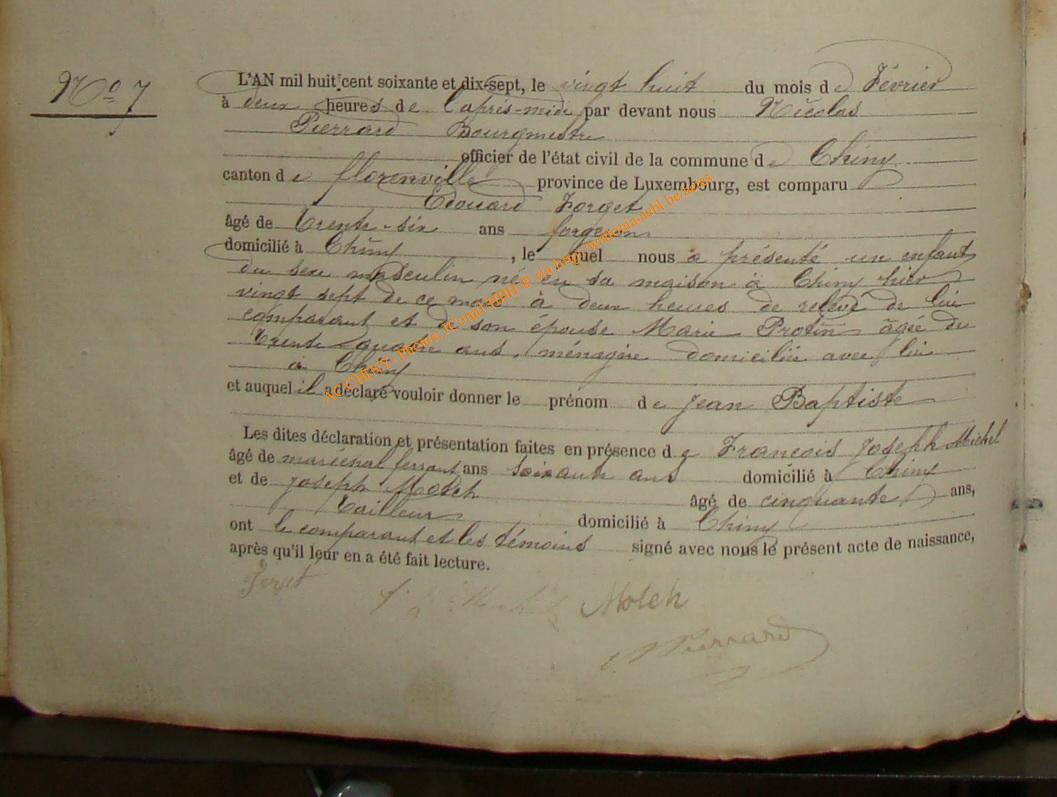 No 7
L'AN mil huit cent soixante et dix-sept, le vingt huit du mois de Février
à deux heures de l'après-midi par devant nous Nicolas
Pierrard Bourgmestre
officier de l'état civil de la commune de Chiny
canton de florenville province de Luxembourg, est comparu
Edouard Forget
âgé de trente-six ans forgeron
domicilié à Chiny, le quel nous a présenté un enfant
du sexe masculin né en sa maison à Chiny hier
vingt sept de ce mois à deux heures de relevé de lui
comparant et de son épouse Marie Protin âgée de
trente quatre ans, ménagère domiciliée avec lui
à Chiny
et auquel il a déclaré vouloir donner le prénom de jean Baptiste
Les dites déclaration et présentation faites en présence de François Joseph Michel
âgé de maréchal ferrant ans soixante ans domicilié à Chiny
et de Joseph Motch âgé de cinquante ans,
tailleur domicilié à Chiny
ont le comparant et les témoins signé avec nous le présent acte de naissance,
après qu'il leur en a été fait lecture.
Forget Motch
Pierrard